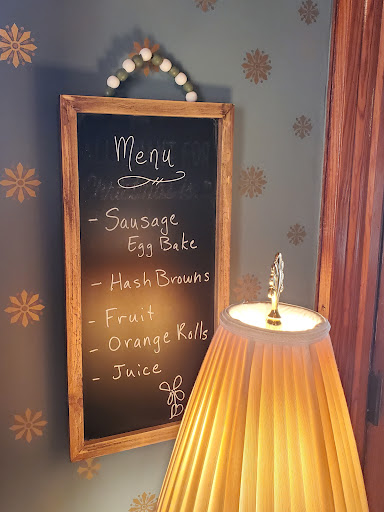 Menu
- Sausage
Egg Bake
- Hash Browns
- Fruit
- Orange Rolls
- Juice